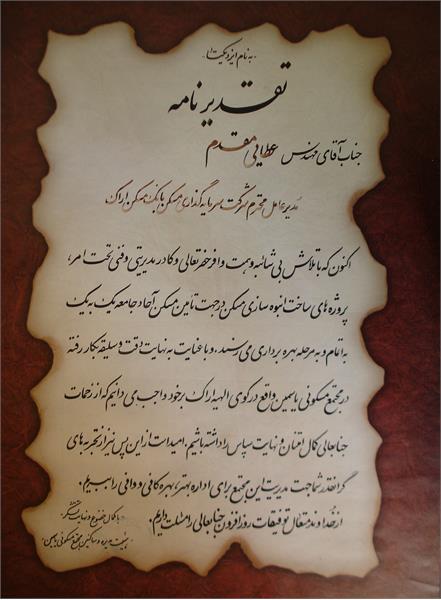 به نام ایزد یکتا
تقدیر نامه
جناب آقای مهندس عطایی مقدم
مدیر عامل محترم شرکت سرمایه گذاری مسکن بانک مسکن اراک
اکنون که با تلاش بی شائبه و همت وافر حضرتعالی و کادر مدیریتی و فنی تحت امر،
پروژه های ساخت انبوه سازی مسکن در جهت تأمین مسکن آحاد جامعه یک به یک
به اتمام و به مرحله بهره برداری می رسند، و با عنایت به نهایت دقت و سلیقه بکار رفته
در مجتمع مسکونی یاسمین واقع در کوی الهیه اراک بر خود واجب می دانیم که از زحمات
جنابعالی کمال امتنان و نهایت سپاس را داشته باشیم. امید است از این پس نیز از تجربه های
گرانقدر شما جهت مدیریت این مجتمع برای اداره بهتر، بهره کافی و وافی را ببریم.
از خداوند متعال توفیقات روز افزون جنابعالی را مسئلت داریم.
با کمال احترام و نهایت تشکر
هیئت مدیره و ساکنین مجتمع مسکونی یاسمین